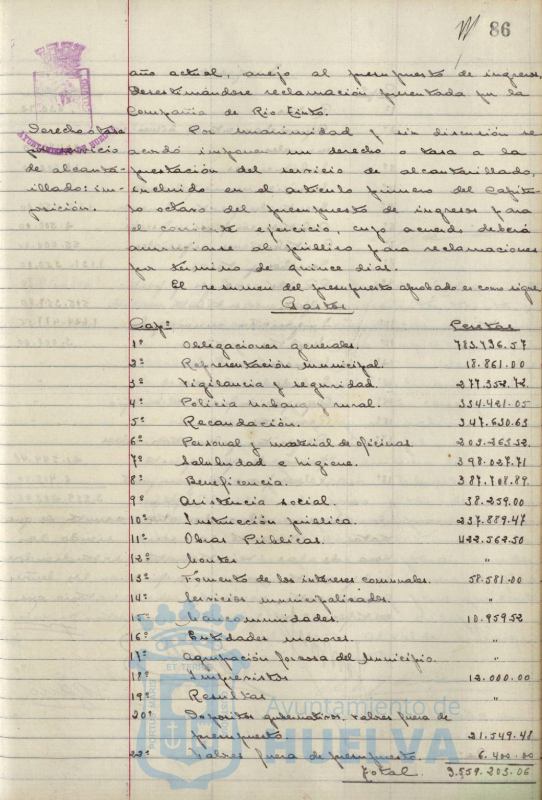 86
año actual, anejo al presupuesto de ingresos,
desestimándose reclamación presentada por la
Compañía de Rio-Tinto.
Derecho o tasa
por servicio
de alcanta-
rillado: im-
posición.
Por unanimidad y sin discusión se
acordó imponer un derecho o tasa a la
prestación del servicio de alcantarillado,
incluido en el artículo primero del Capítu-
lo octavo del presupuesto de ingresos para
el corriente ejercicio, cuyo acuerdo deberá
anunciarse al público para reclamaciones
por término de quince días.
El resumen del presupuesto aprobado es como sigue
Gastos
Capº Pesetas
1º Obligaciones generales. 783.736.57
2º Representación municipal. 18.861.00
3º Vigilancia y seguridad 277.352.72
4º Policía urbana y rural. 334.421.05
5º Recaudación. 347.630.63
6º Personal y material de oficinas 203.263.32
7º Salubridad e higiene. 398.027.71
8º Beneficencia. 387.708.89
9º Asistencia social. 38.259.00
10º Instrucción pública. 237.889.47
11º Obras Públicas. 422.562.50
12º Montes "
13º Fomento de los intereses comunales. 58.581.00
14º Servicios municipalizados. "
15º Mancomunidades. 10.959.52
16º Entidades menores. "
17º Agrupación forzosa del Municipio. "
18º Imprevistos 12.000.00
19º Resultas "
20º Depósitos gubernativos. Valores fuera de
presupuesto. 21.549.48
22º Valores fuera de presupuesto. 6.400.00
Total. 3.559.203.06
Ayuntamiento de
HUELVA